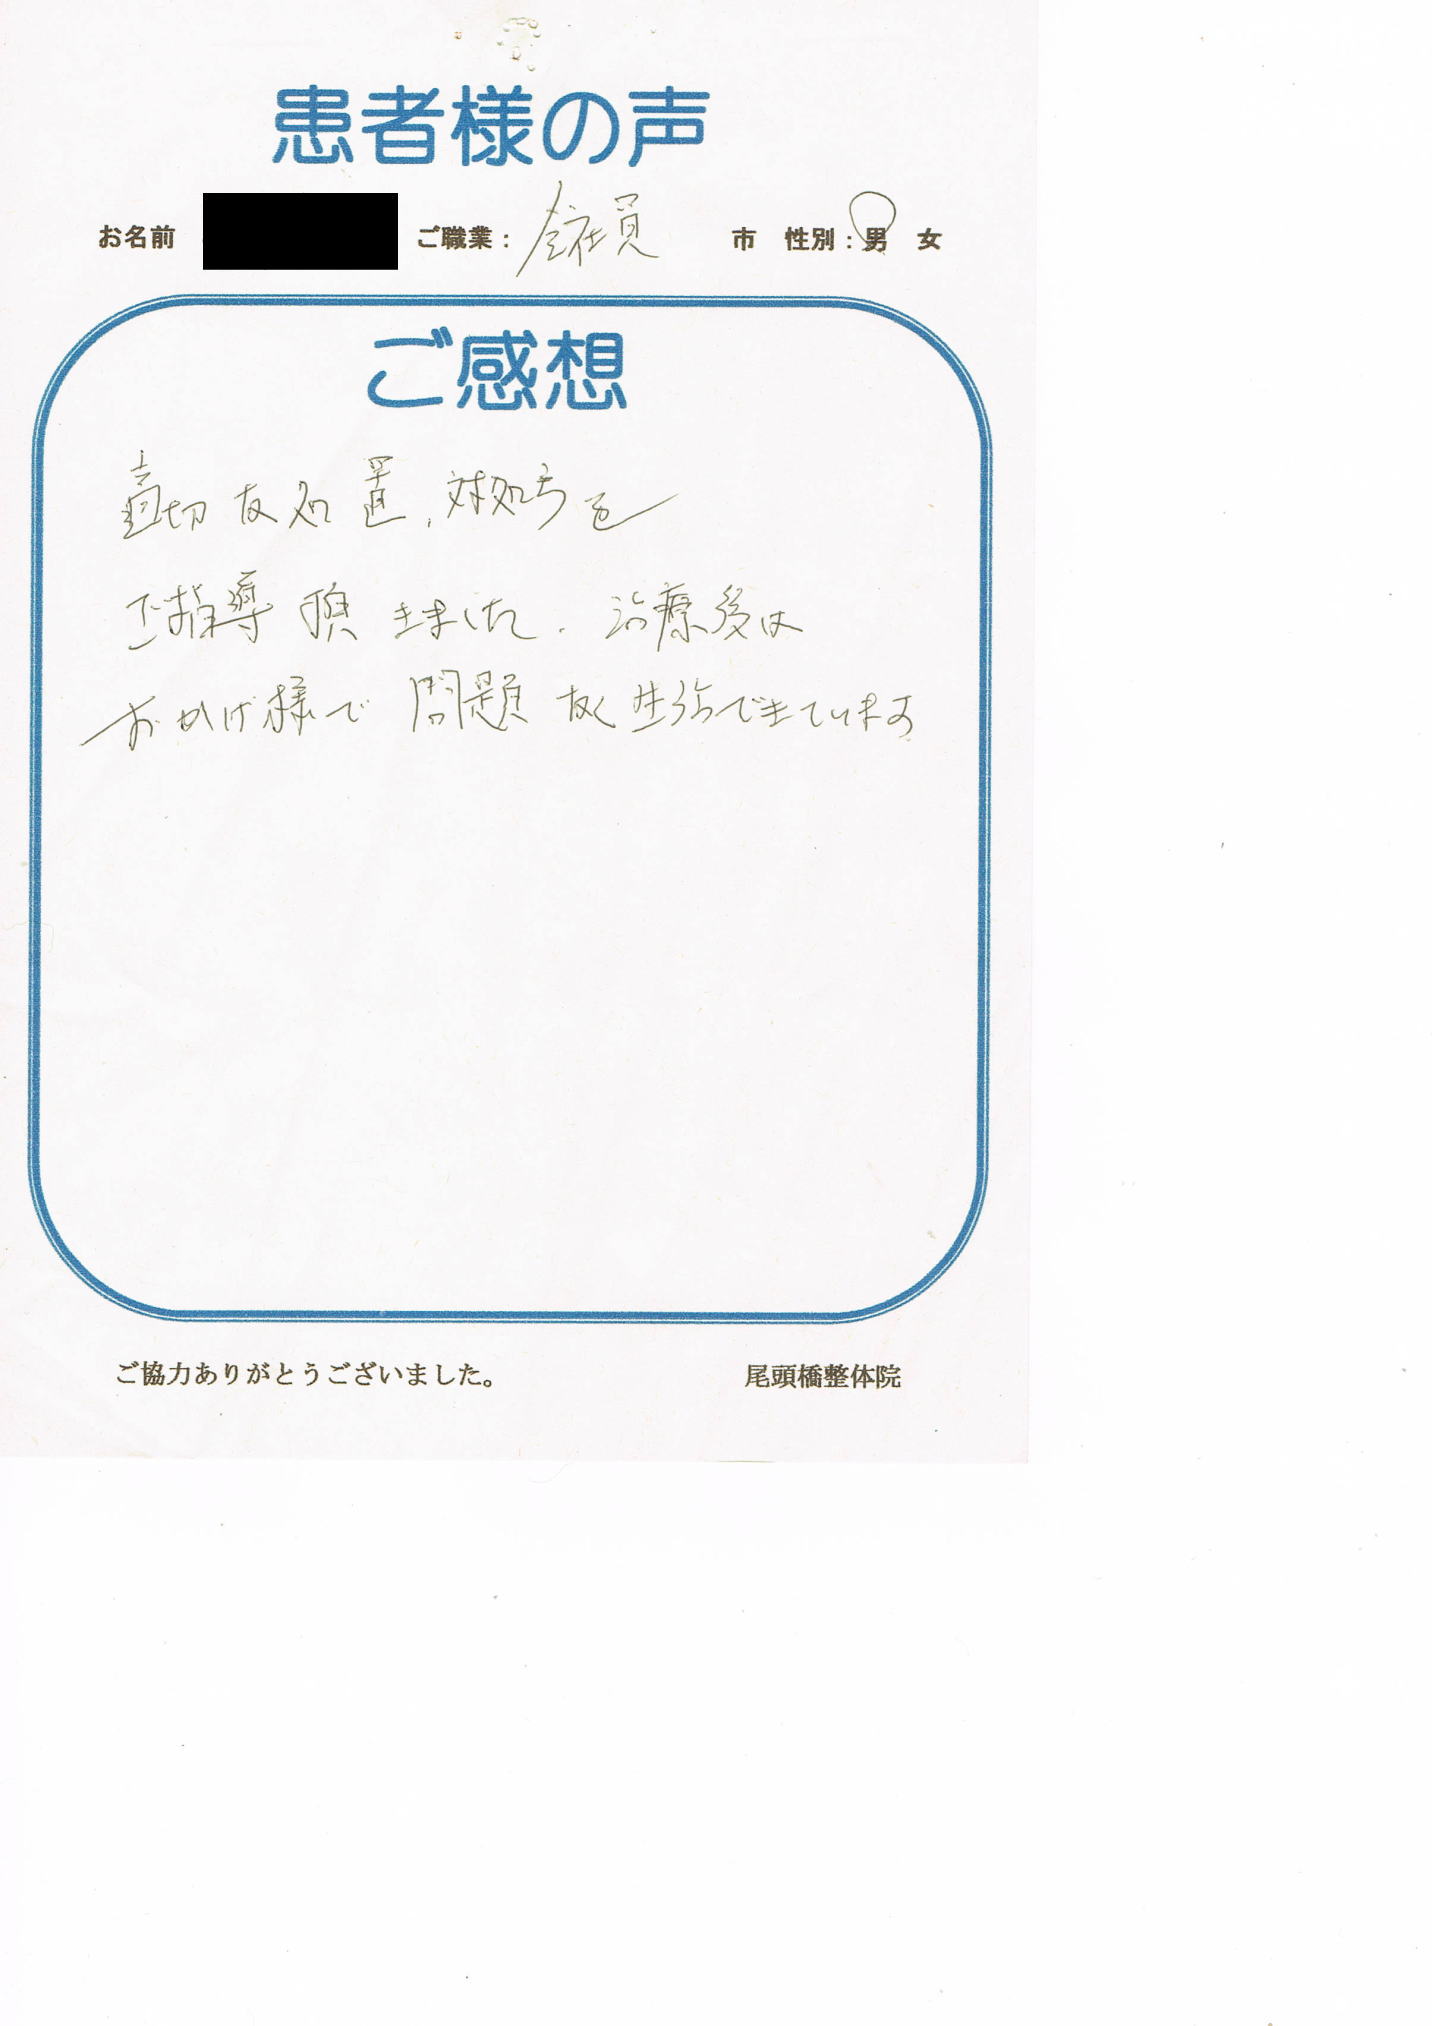 患者様の声
お名前 ご職業： 会社員 市 性別：男 女
ご感想
適切な処置、対処方を
ご指導頂きました。治療後は
おかげ様で問題なく生活できています
ご協力ありがとうございました。 尾頭橋整体院